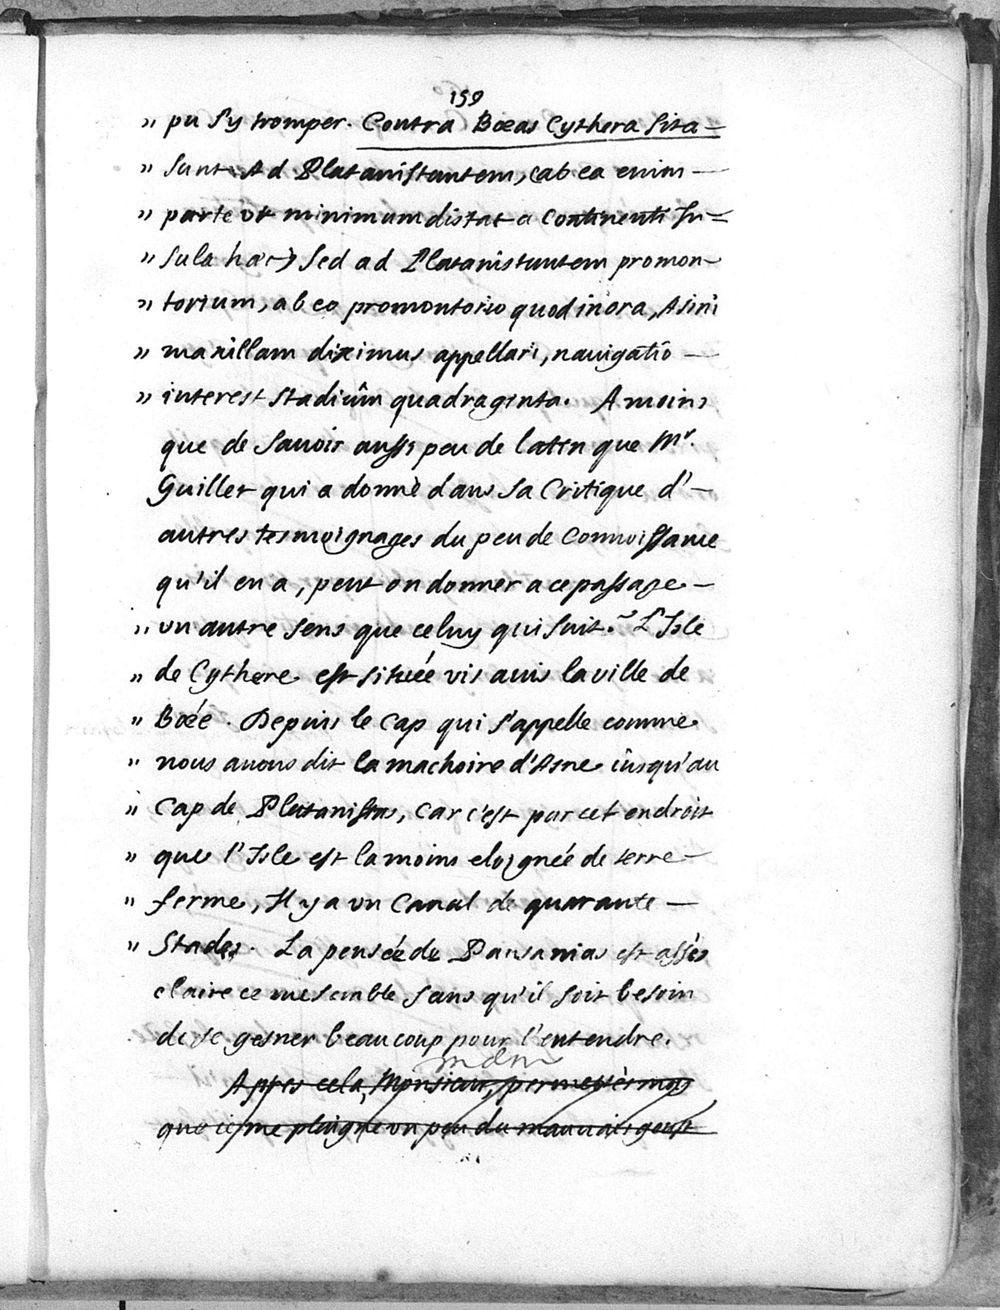 159
" pu s'y tromper. Contra Bœas Cythera sita –
" sunt. Ad Platanistantem, (ab ea enim –
" parte vt minimum distat a continenti In=
" sula hæc) sed ad Platanistantem promon-
" torium, ab eo promontorio quod in ora, Asini
" maxillam diximus appellari, nauigatio –
" interest stadiûm quadraginta. A moins
que de sauoir aussi peu de latin que Mr.
Guillet qui a donné dans sa Critique d'–
autres tesmoignages du peu de connoissance
qu'il en a, peut on donner a ce passage –
" vn autre sens que celuy qui suit. L'Isle
" de Cythere est situéé vis auis la ville de
" Boéé. Depuis le Cap qui s'appelle comme
" nous auons dit la machoire d'Asne iusqu'au
" Cap de Platanistas, car c'est par cet endroit
" que l'Isle est la moins eloignéé de terre –
" ferme, Il y a vn Canal de quarante –
" Stades. La penséé de Pausanias est assés
claire ce me semble sans qu'il soit besoin
de se gesner beaucoup pour l'entendre.
Apres cela, Monsieur, permettés moy
que ie me plaigne vn peu du mauuais goust